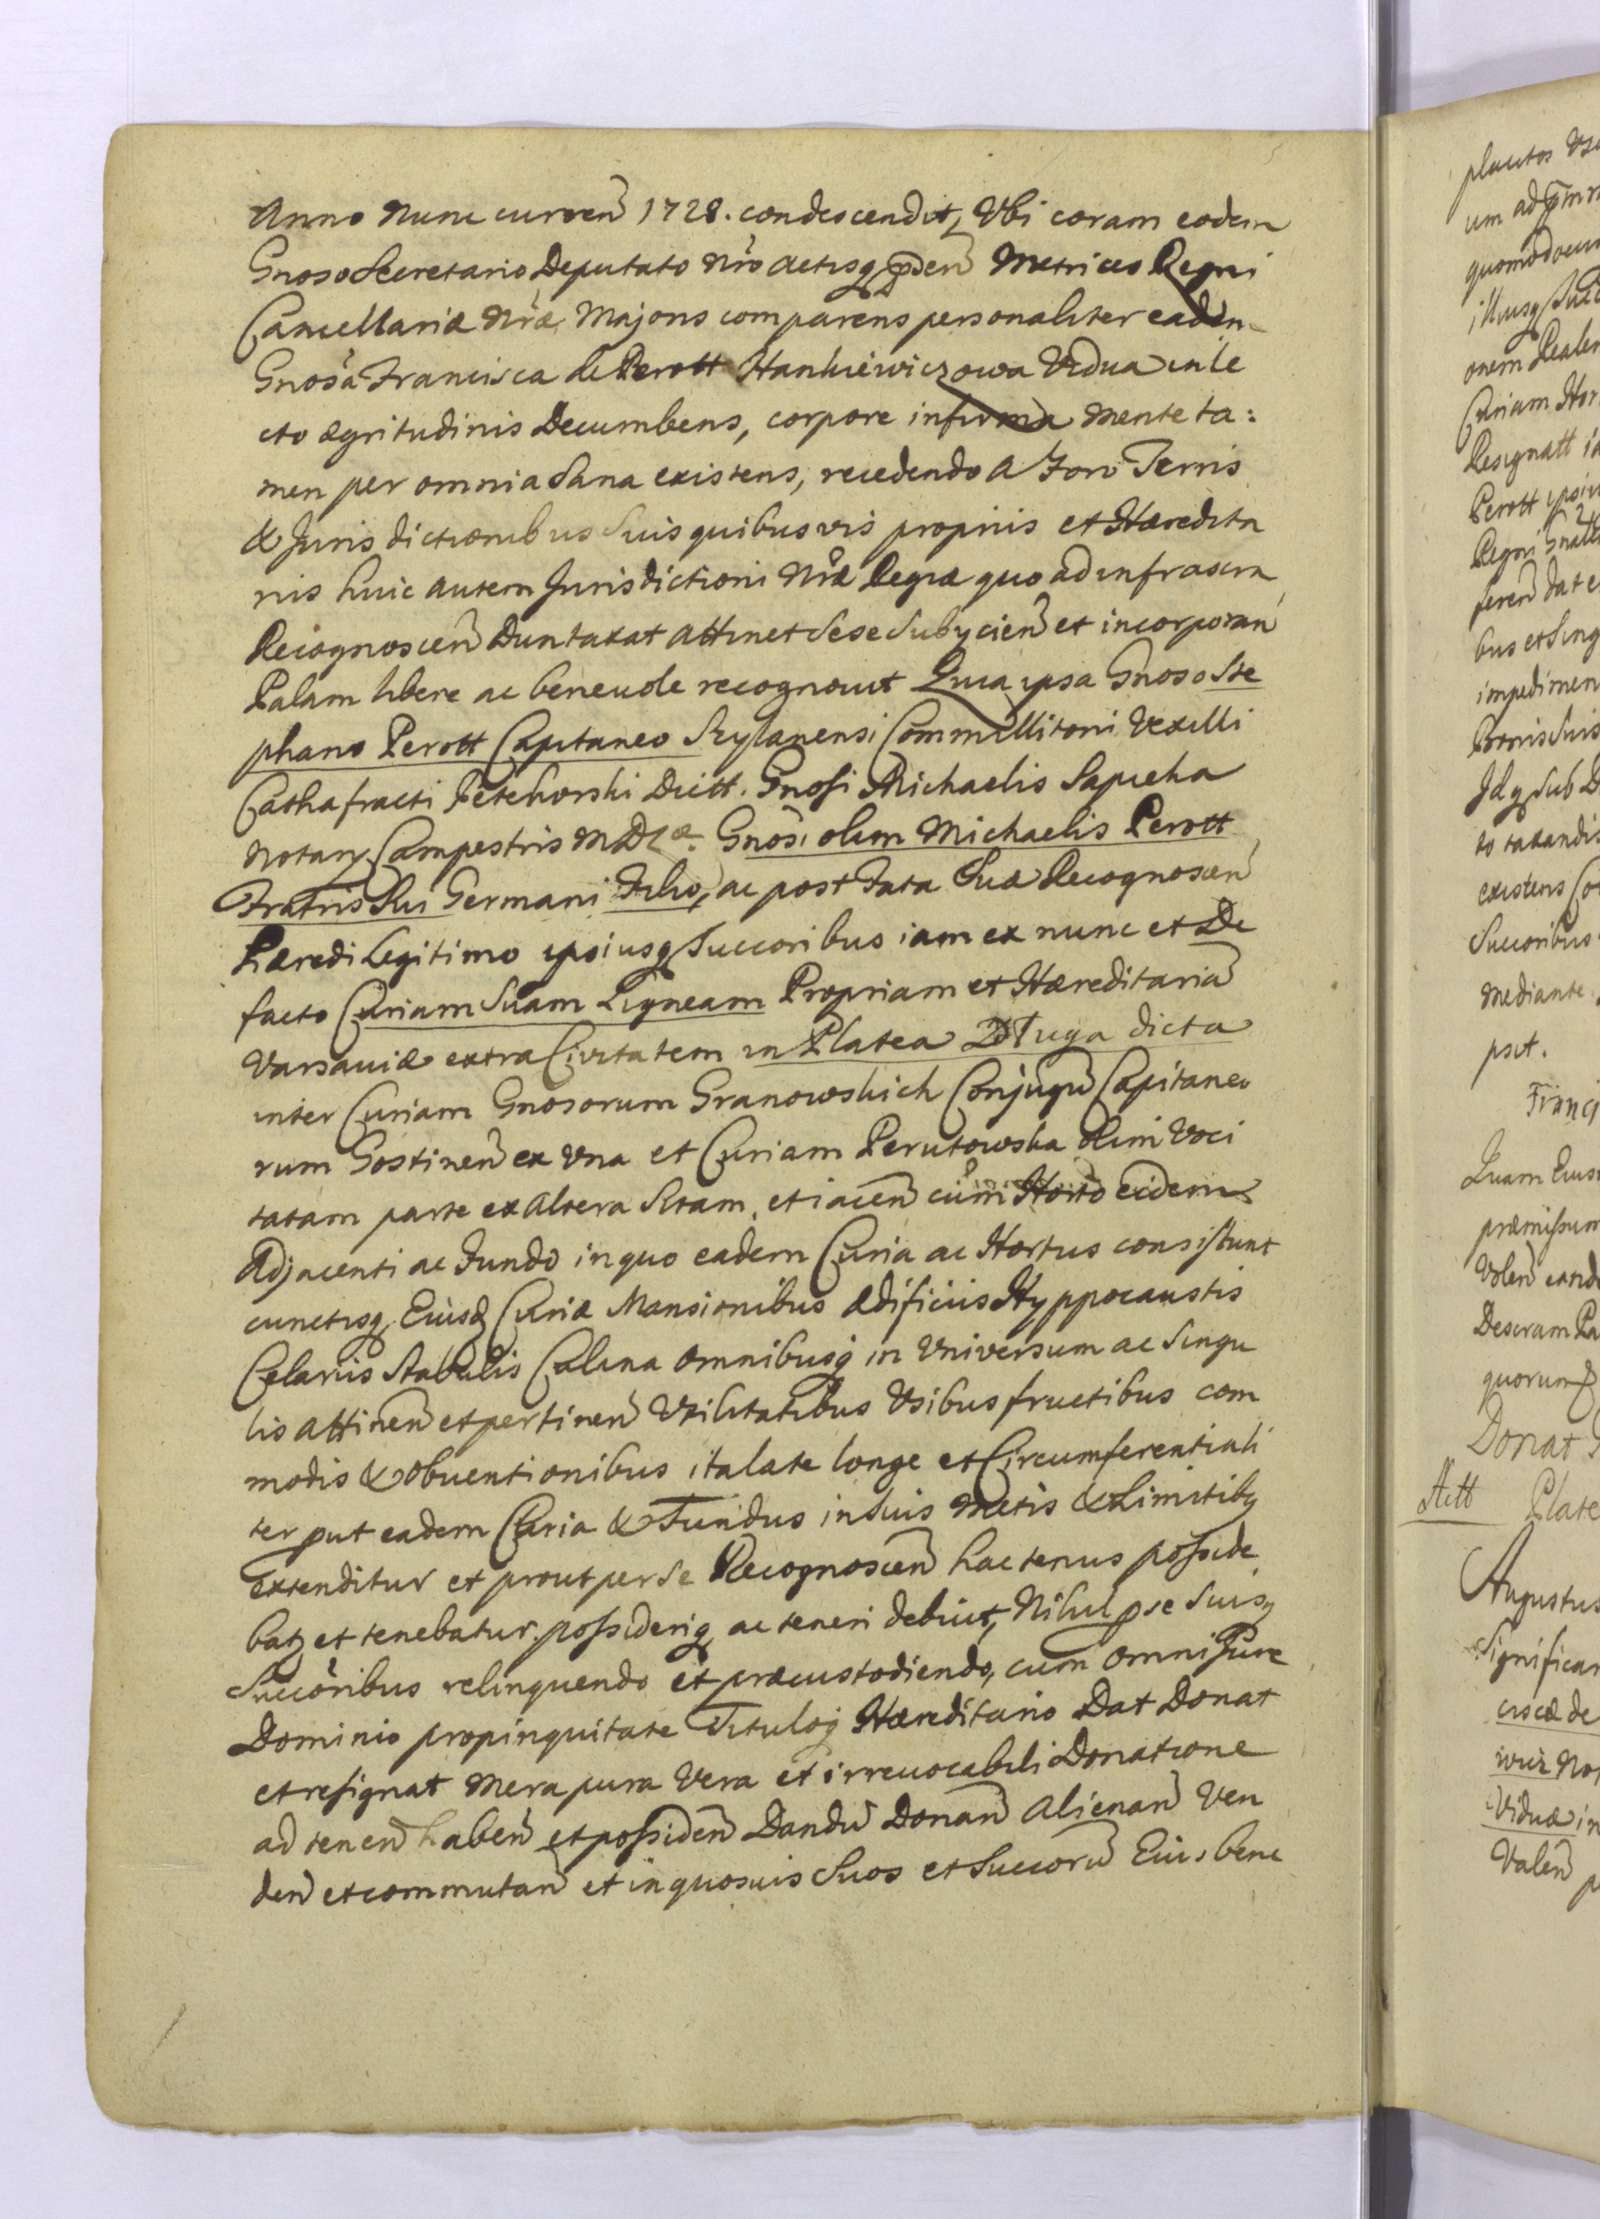 Anno nunc curren̄ 1728. condescendit, Vbi coram eodem
Gnoso Secretario Deputato nr̄o actisq́ p̄den̄ Metrices Regni
Cancellariæ nr̄æ Majoris comparens personaliter eadem
Gnosa Francisca de Perott Hankiewiczowa Vidua in le
cto ægritudinis Decumbens, corpore infirma mente ta:
men per omnia Sana existens, recedendo a Foro Terris
& Jurisdictionibus Suis quibusvis proprijs et Hæredita
rijs huic autem Jurisdictioni nr̄æ Regiæ quo ad infrascrn̄
Recognoscen̄ Duntaxat attinet Sese Subjicien̄ et incorporan̄
Palam libere ac beneuole recognouit Quia ipsa Gnoso Ste
phano Perott Capitaneo Commillitoni Vexilli
Cathafracti Petehorski Dictt. Gnosi Michaelis Sapieha
Notarij Campestris MDLæ. Gnosi olim Michaelis Perott
Fratris Sui Germani Filio, ac post Fata Sua Recognoscen̄
Hæredi Legitimo ipsiusq́ Succoribus iam ex nunc et De
facto Curiam Suam Ligneam Propriam et Hæreditariā
Varsauiæ extra Ciuitatem in Platea Długa dicta
inter Curiam Gnosorum Granowskich Conjugū Capitaneo
rum Gostinen̄ ex Vna et Curiam Perutowska olim Voci
tatam parte ex Altera Sitam, et iacen̄ cum Horto eidem
Adjacenti ac Fundo in quo eadem Curia ac Hortus consistunt
cunctisq́ Eiusd̄ Curiæ Mansionibus ædificijs Hyppocaustis
Celarijs Stabulis Culina omnibusq́ in Vniversum ac Singu
lis attinen̄ et pertinen̄ Vtilitatibus Vsibus fructibus com
modis & obuentionibus ita late longe et Circumferentiali
ter put eadem Curia & Fundus in Suis Metis & Limitibq
Extenditur et prout per Se Recognoscen̄ hactenus posside
batʒ et tenebatur. possideriq́ ac teneri debuit, Nihil p se Suisq́
Succoribus relinquendo et præcustodiendo, cum omni Jure
Dominio propinquitate Tituloq́ Hæreditario Dat Donat
et resignat mera pura Vera et irreuocabili Donatione
ad tenen̄ haben̄ et possiden̄ Dandū Donan̄ Alienan̄ Ven
den̄ et commutan̄ et in quosuis Suos et Succorū Eius bene
placitos
um ad

onem Realem
Curiam
Resignatt
Perott
Regni
feren̄ dat
bus et Sing
impedimen
Suis
Idq́ Sub
to taxandis
existens
Succoribus
mediante
psit.
Franci
Quam Eius
præmissum
Volen̄
Pa
quorum
Donat
Actt Plate
Augustus
Significam
ciscæ de

Viduæ in
Valen̄